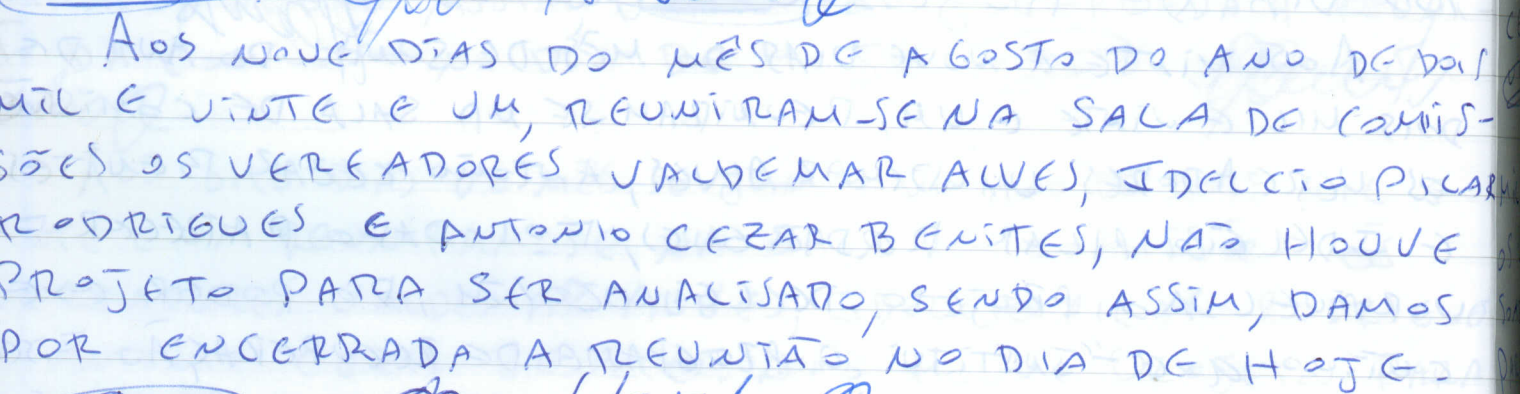 AOS NOVE DIAS DO MÊS DE AGOSTO DO ANO DE DOIS
MIL E VINTE E UM, REUNIRAM-SE NA SALA DE COMIS-
SÕES OS VEREADORES VALDEMAR ALVES, IDELCIO
RODRIGUES E ANTONIO CEZAR BENITES, NÃO HOUVE
PROJETO PARA SER ANALISADO, SENDO ASSIM, DAMOS
POR ENCERRADA A REUNIÃO NO DIA DE HOJE.